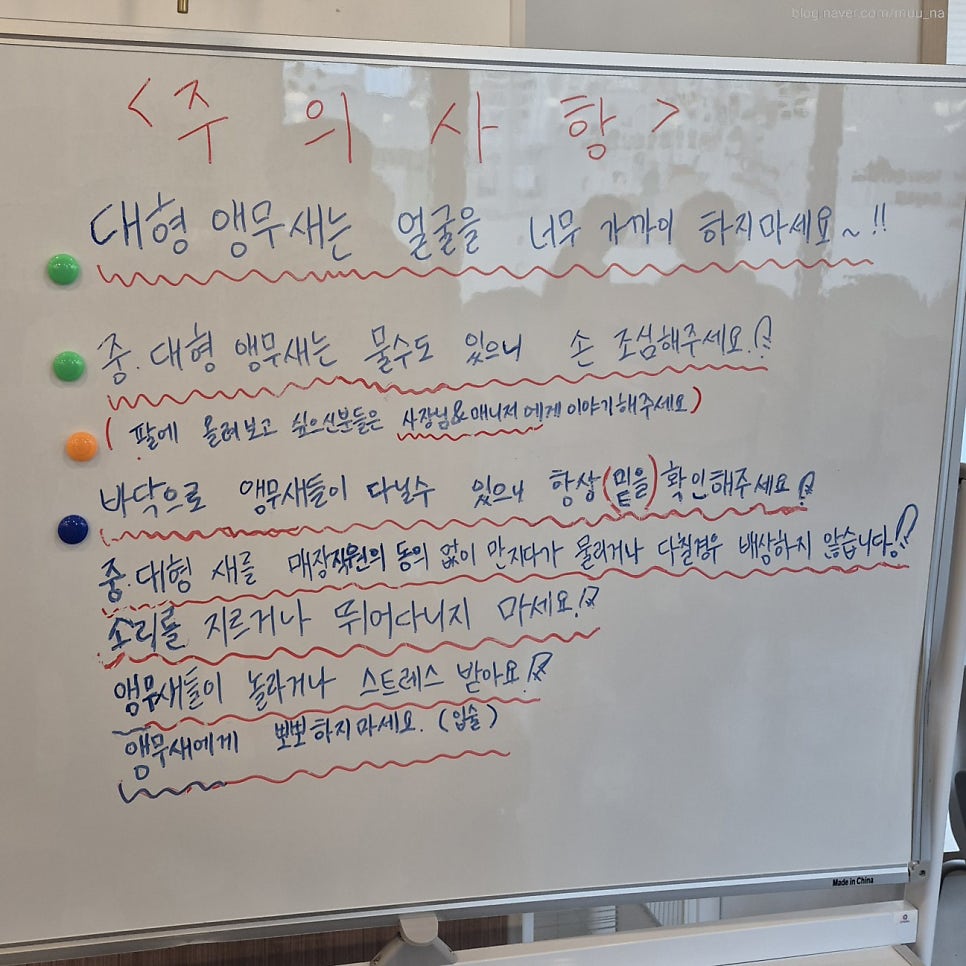 blog.naver.com/muu_na
<주의사항>
대형 앵무새는 얼굴을 너무 가까이 하지마세요~!!
중.대형 앵무새는 물수도 있으니 손 조심해주세요.!!
(팔에 올려보고 싶으신분들은 사장님&매니저에게 이야기해주세요)
바닥으로 앵무새들이 다닐수 있으니 항상(밑을)확인해주세요!!
중.대형 새를 매장직원의 동의 없이 만지다가 물리거나 다칠경우 배상하지 않습니다!!
소리를 지르거나 뛰어다니지 마세요.!!
앵무새들이 놀라거나 스트레스 받아요!!
앵무새에게 뽀뽀하지마세요. (입술)
Made in China